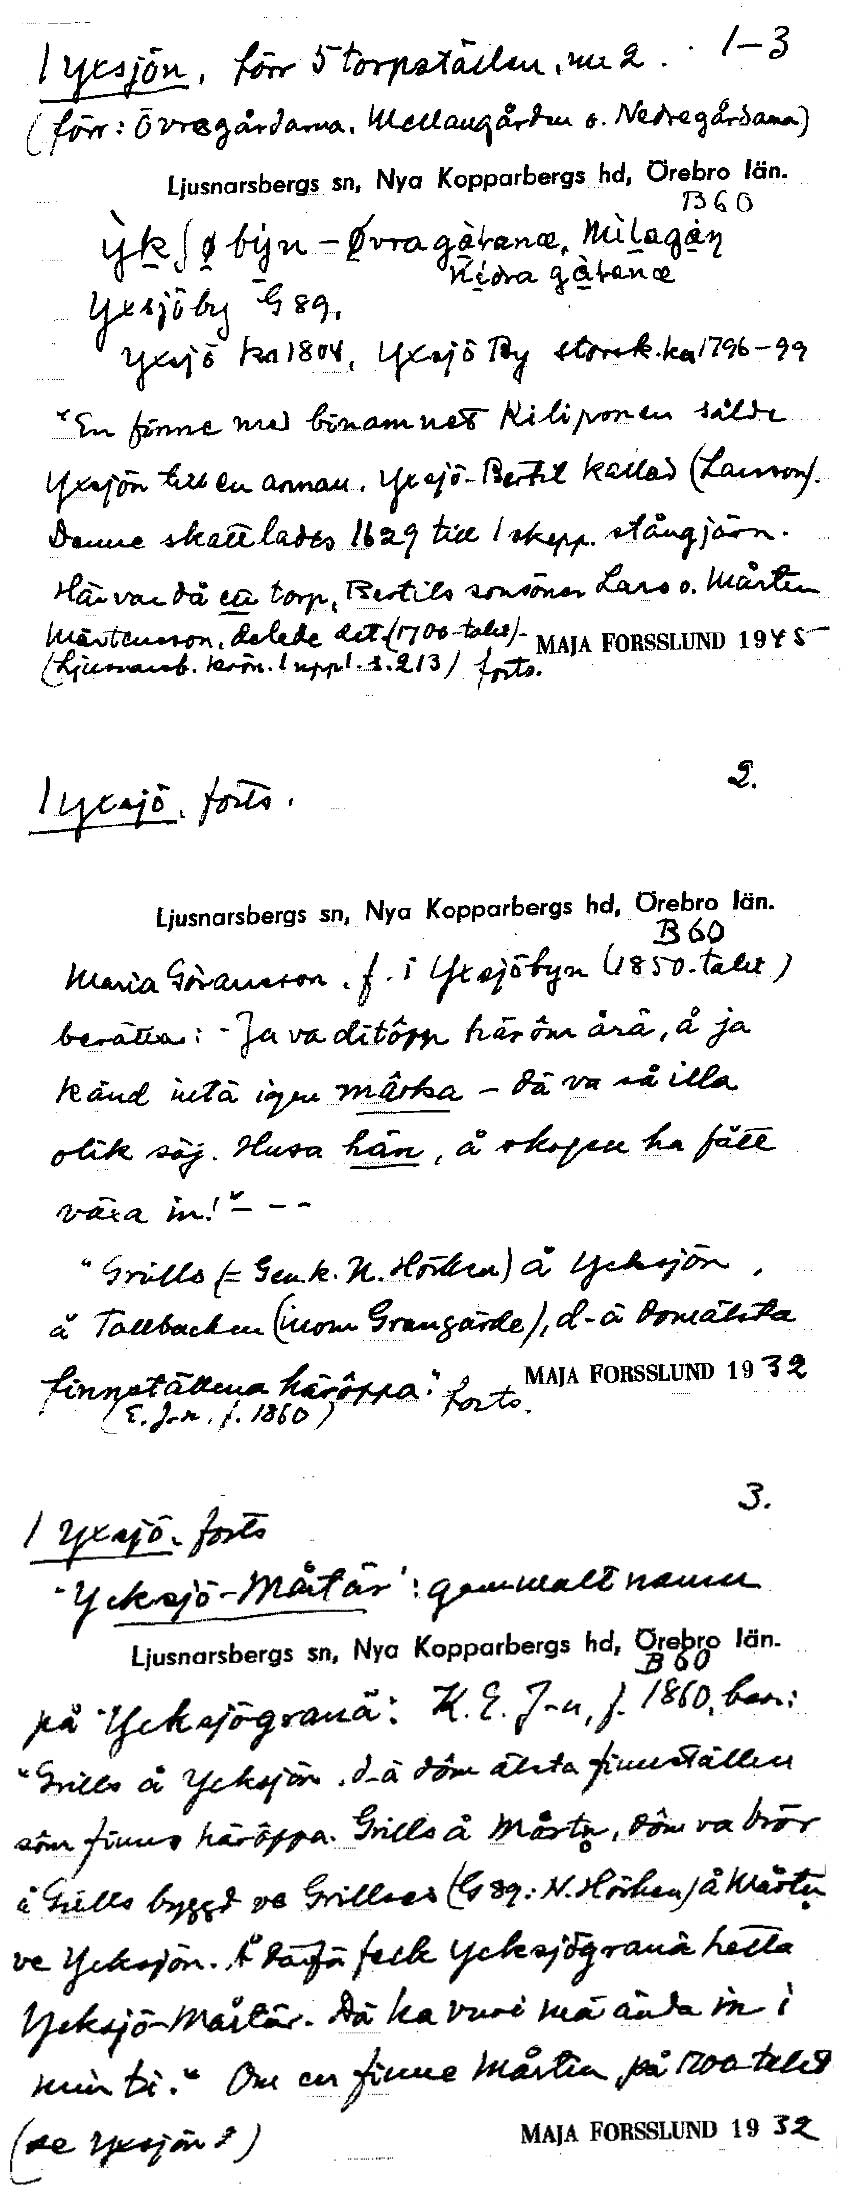 1 Yxsjön, förr 5 torpställen, nu 2. 1–3
(förr: Övregårdarna, Mellangården o. Nedregårdarna)
Ljusnarsbergs sn, Nya Kopparbergs hd, Örebro län.
B60
ỳkʃøbýn – Øvragàtanæ, Mìlagàɳ
Nèdra gàtanæ
Yxsjöby G 89.
Yxsjö ka 1804, Yxsjö By storsk. ka 1796–99
"En finne med binamnet Kiliponen sålde
Yxsjön till en annan, Yxsjö-Bertil kallad (Larsson).
Denne skattlades 1629 till 1 skepp. stångjärn.
Här var då ett torp, Bertils sonsöner Lars o. Mårten
Mårtensson, delade det (1700-talet)-
MAJA FORSSLUND 1945
(Ljusnarsb. krön. 1 uppl. s. 213) forts.
1 Yxsjö, forts. 2.
Ljusnarsbergs sn, Nya Kopparbergs hd, Örebro län.
B60
Maria Göransson, f. i Yxsjöbyn (1850-talet)
berättar: "Ja va ditöpp häröm årä, å ja
känd intä igen märka – dä va så illa
olik säj. Husa hän, å skogen ha fått
växa in!" – – –
"Grills (= Gen.k. N. Hörken) å Ycksjön,
å Tallbacken (inom Grangärde), d-ä domälsta
finnställena häröppa." forts.
MAJA FORSSLUND 1932
(E. J-n, f. 1860)
3.
1 Yxsjö, forts
"Ycksjö-Mårtär": gammalt namn
Ljusnarsbergs sn, Nya Kopparbergs hd, Örebro län.
B60
på "Ycksjögranä": K. E. J-n, f. 1860, ber.:
"Grills å Ycksjön, d-ä döm älsta finnställen
söm finns häröppa. Grills å Mårtn, döm va brör
å Grills byggd ve Grillses (G 89: N. Hörken) å Mårtn
ve Ycksjön. Å därfä feck Ycksjögranä hetta
Ycksjö-Mårtär. Dä ha vuri mä ända in i
min ti." Om en finne Mårten på 1700-talet
(se Yxsjön 2)
MAJA FORSSLUND 1932